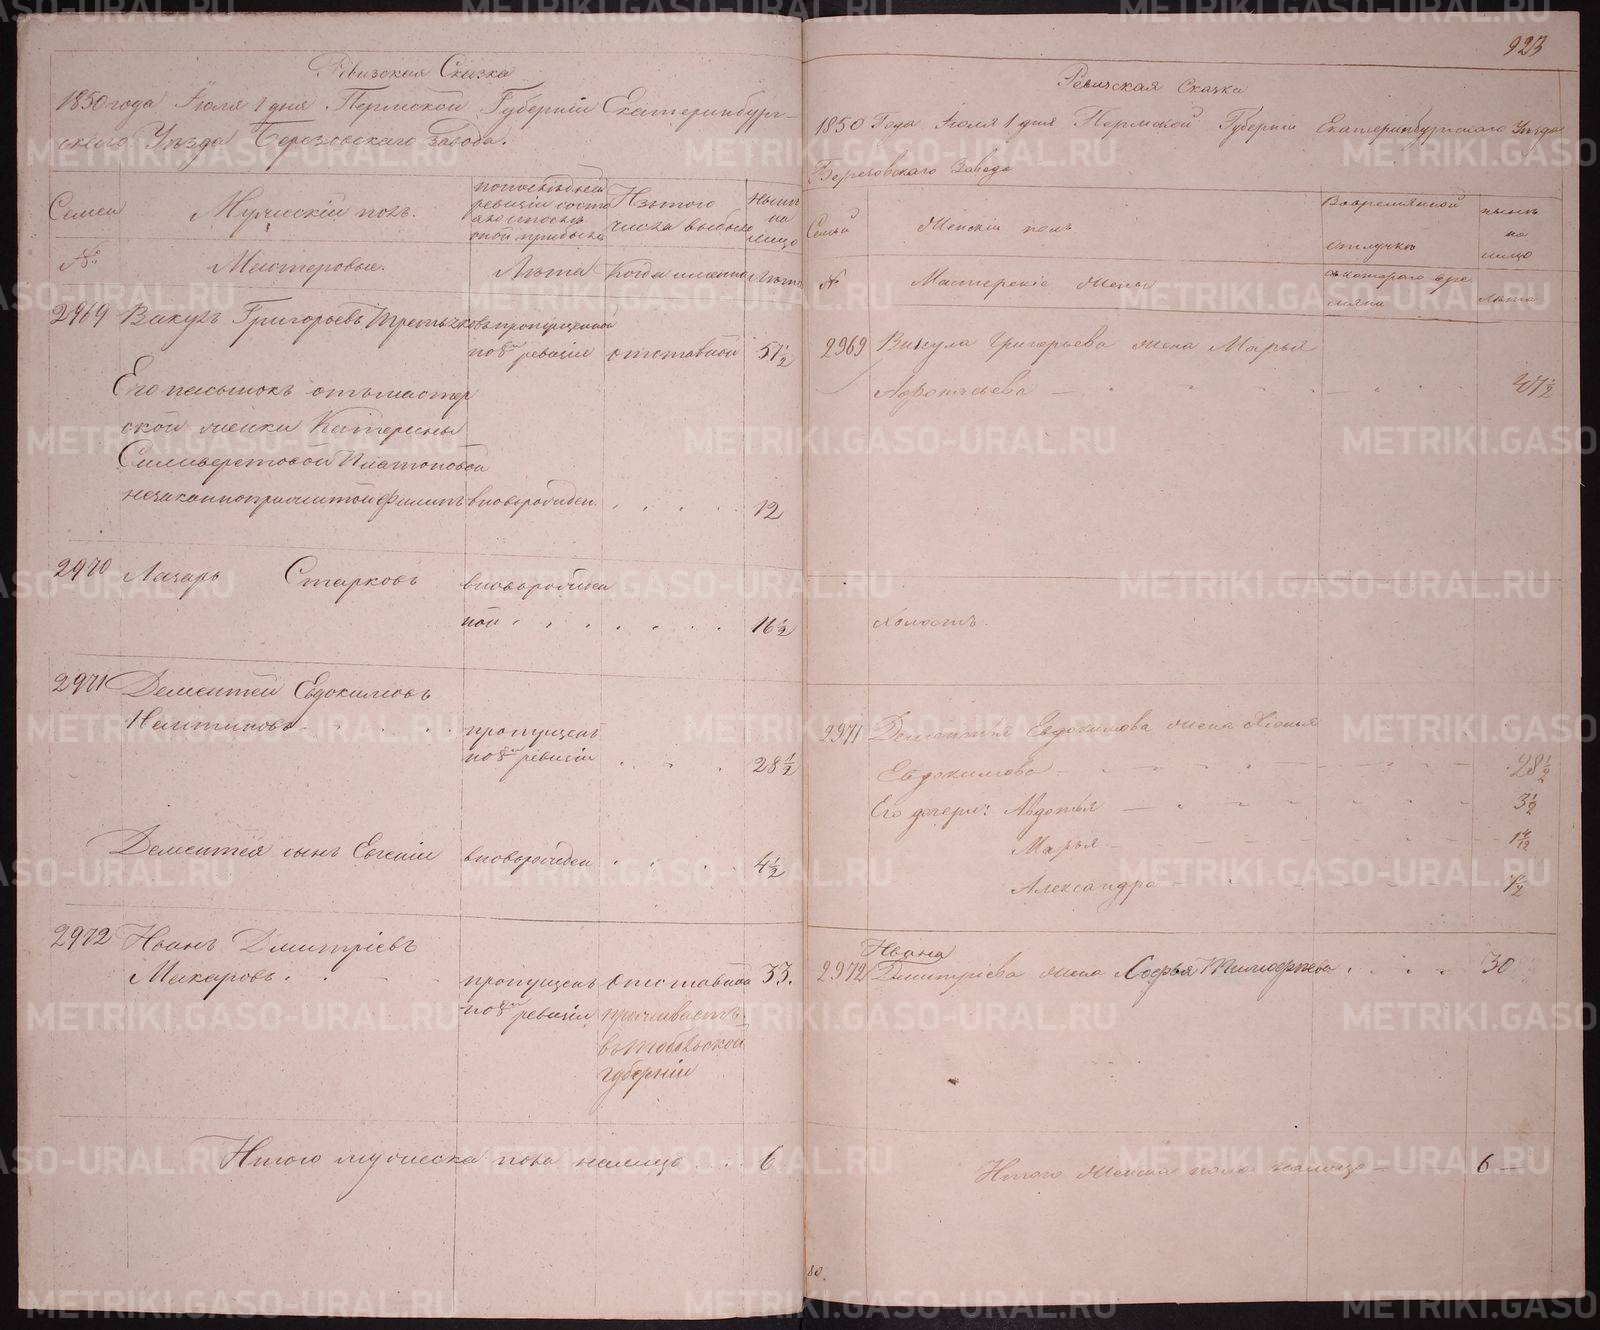 Ревизская Сказка
1850 года Июля 1 дня Пермской Губерніи Екатеринбург-
скаго Уѣзда Березовскаго Завода.
Семьи
Мужескій полъ.
по послѣдней
ревизіи состо
яло и послѣ
оной прибыло
Изъ того
числа выбыло
Нынѣ
на
лицо
№
Мастеровые.
Лѣта
Когда именно
Лѣта
2969 Викулъ Григорьевъ Третьяковъ пропущенной
по 8й ревизіи отставной 51½
Его пасынокъ отъ мастер
ской женки Катерины
Силиверстовой Платоновой
незаконноприжитой Филипъ вноворожден. 12
2970 Лазарь Старковъ вноворожден
ной 16½
2971 Дементей Евдокимовъ
пропущенъ
по 8й ревизіи 28½
Дементея сынъ Евгеній вноворожден 4½
2972 Иванъ Дмитріевъ
Макаровъ. пропущенъ отставной 33.
по 8й ревизіи проживаетъ
въ Тобольской
губерніи
Итого мужеска пола налицо 6
923
Ревизская Сказка
1850 Года Июля 1 дня Пермской Губерніи Екатеринбургскаго Уѣзда
Березовскаго Завода
Семьи
Женскій полъ
Во временной
отлучкѣ
нынѣ
на
лицо
№
Мастерскіе жены
съ котораго вре
мяни
лѣта
2969 Викула Григорьева жена Марья
47½
Холостъ.
2971 Дементія Евдокимова жена
Евдокимова 28½
Его дочери: Авдотья 3½
Марья
Александра ½
Ивана
2972 Дмитріева жена Софья Тимофеева 30
Итого женска пола налицо 6
80.
METRIKI.GASO-URAL.RU